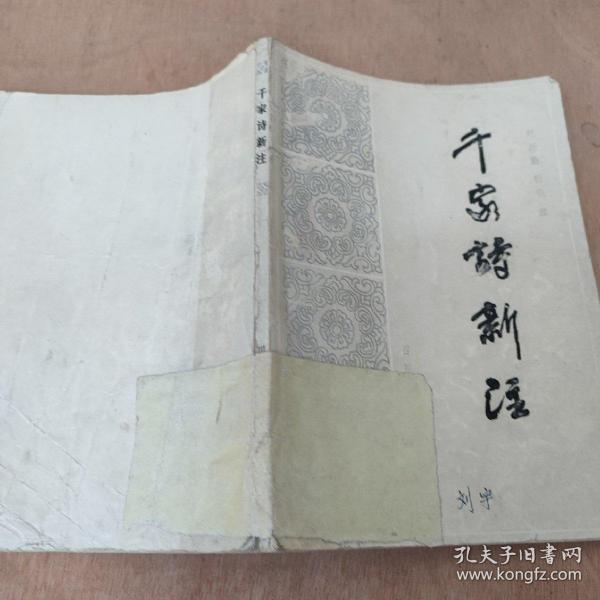 千家诗新注
千家诗新注
刘平
孔夫子旧书网
www.kongfz.com